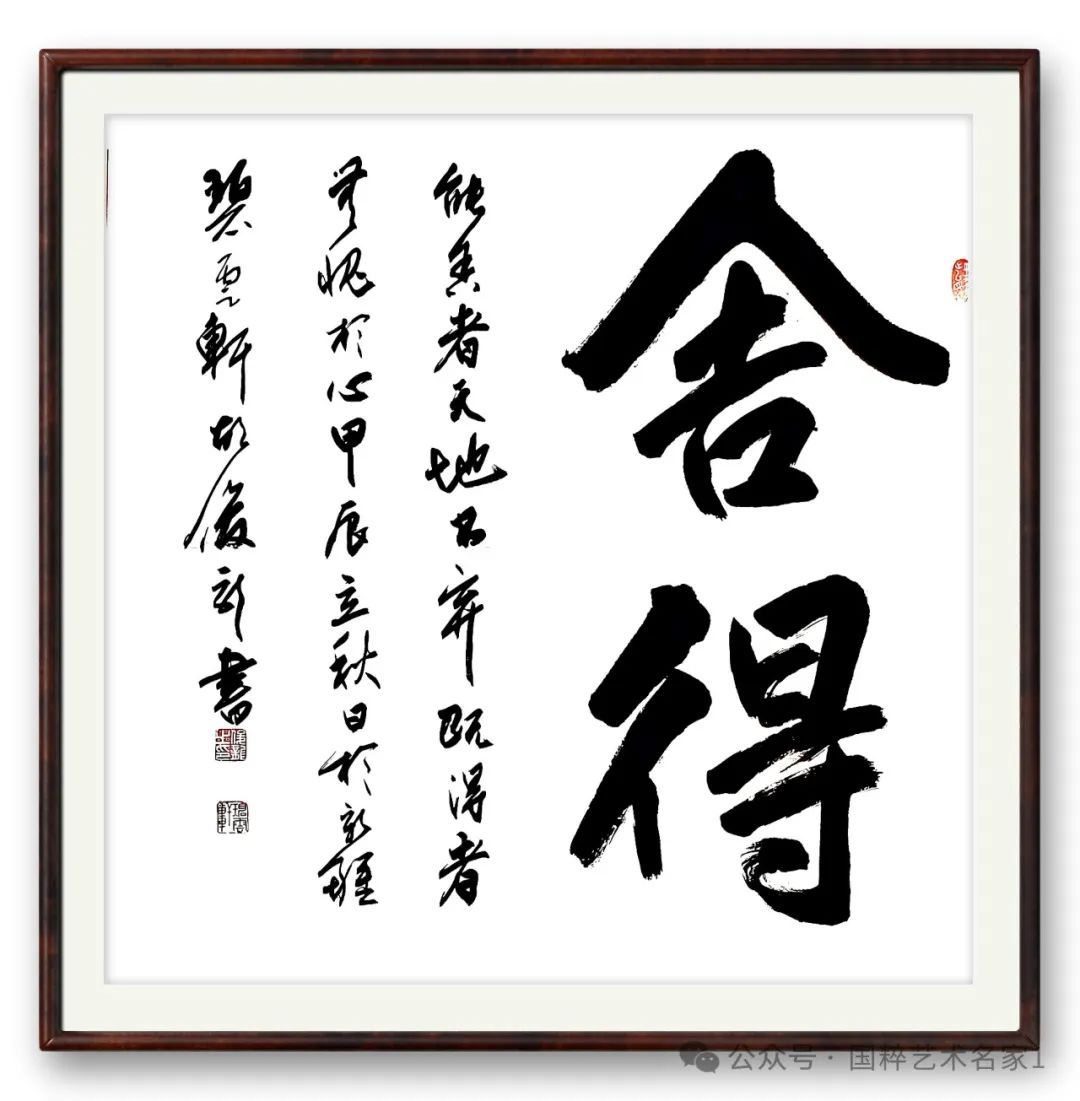 舍得
能舍者天地不弃既得者
無愧於心甲辰立秋日於新疆
碧雲軒胡俊新書
公众号 · 国粹艺术名家1